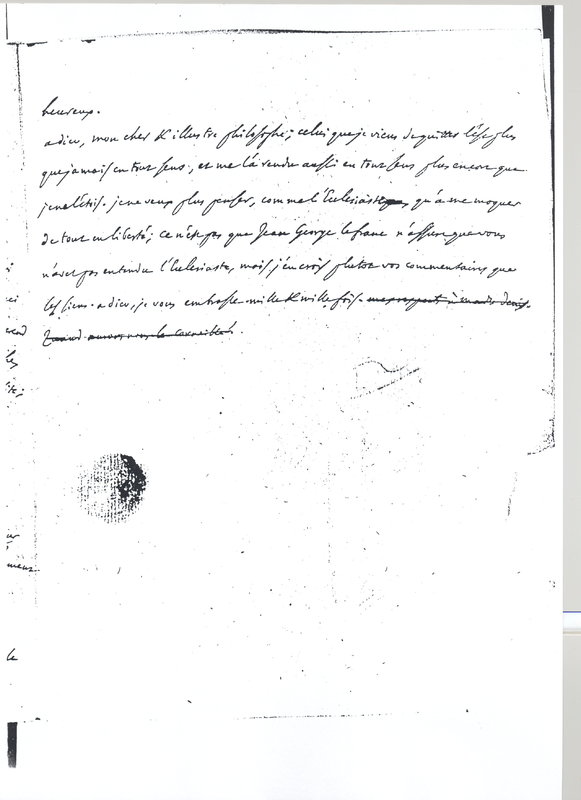 heureux.
adieu, mon cher & illustre philosophe; celui que je viens de quitter l'est plus
que jamais en tout sens, et me l'a rendu aussi en tout sens plus encore que
je ne l'étois. je ne veux plus penser, comme l'Ecclesiaste, qu'à me moquer
de tout en liberté; ce n'est pas que Jean George lefranc n'assure que vous
n'avez pas entendu l'Ecclesiaste, mais j'en crois plutot vos commentaires que
les siens. adieu, je vous embrasse mille & mille fois. mes respects à madame denis.
Quand aurons nous le corneille?